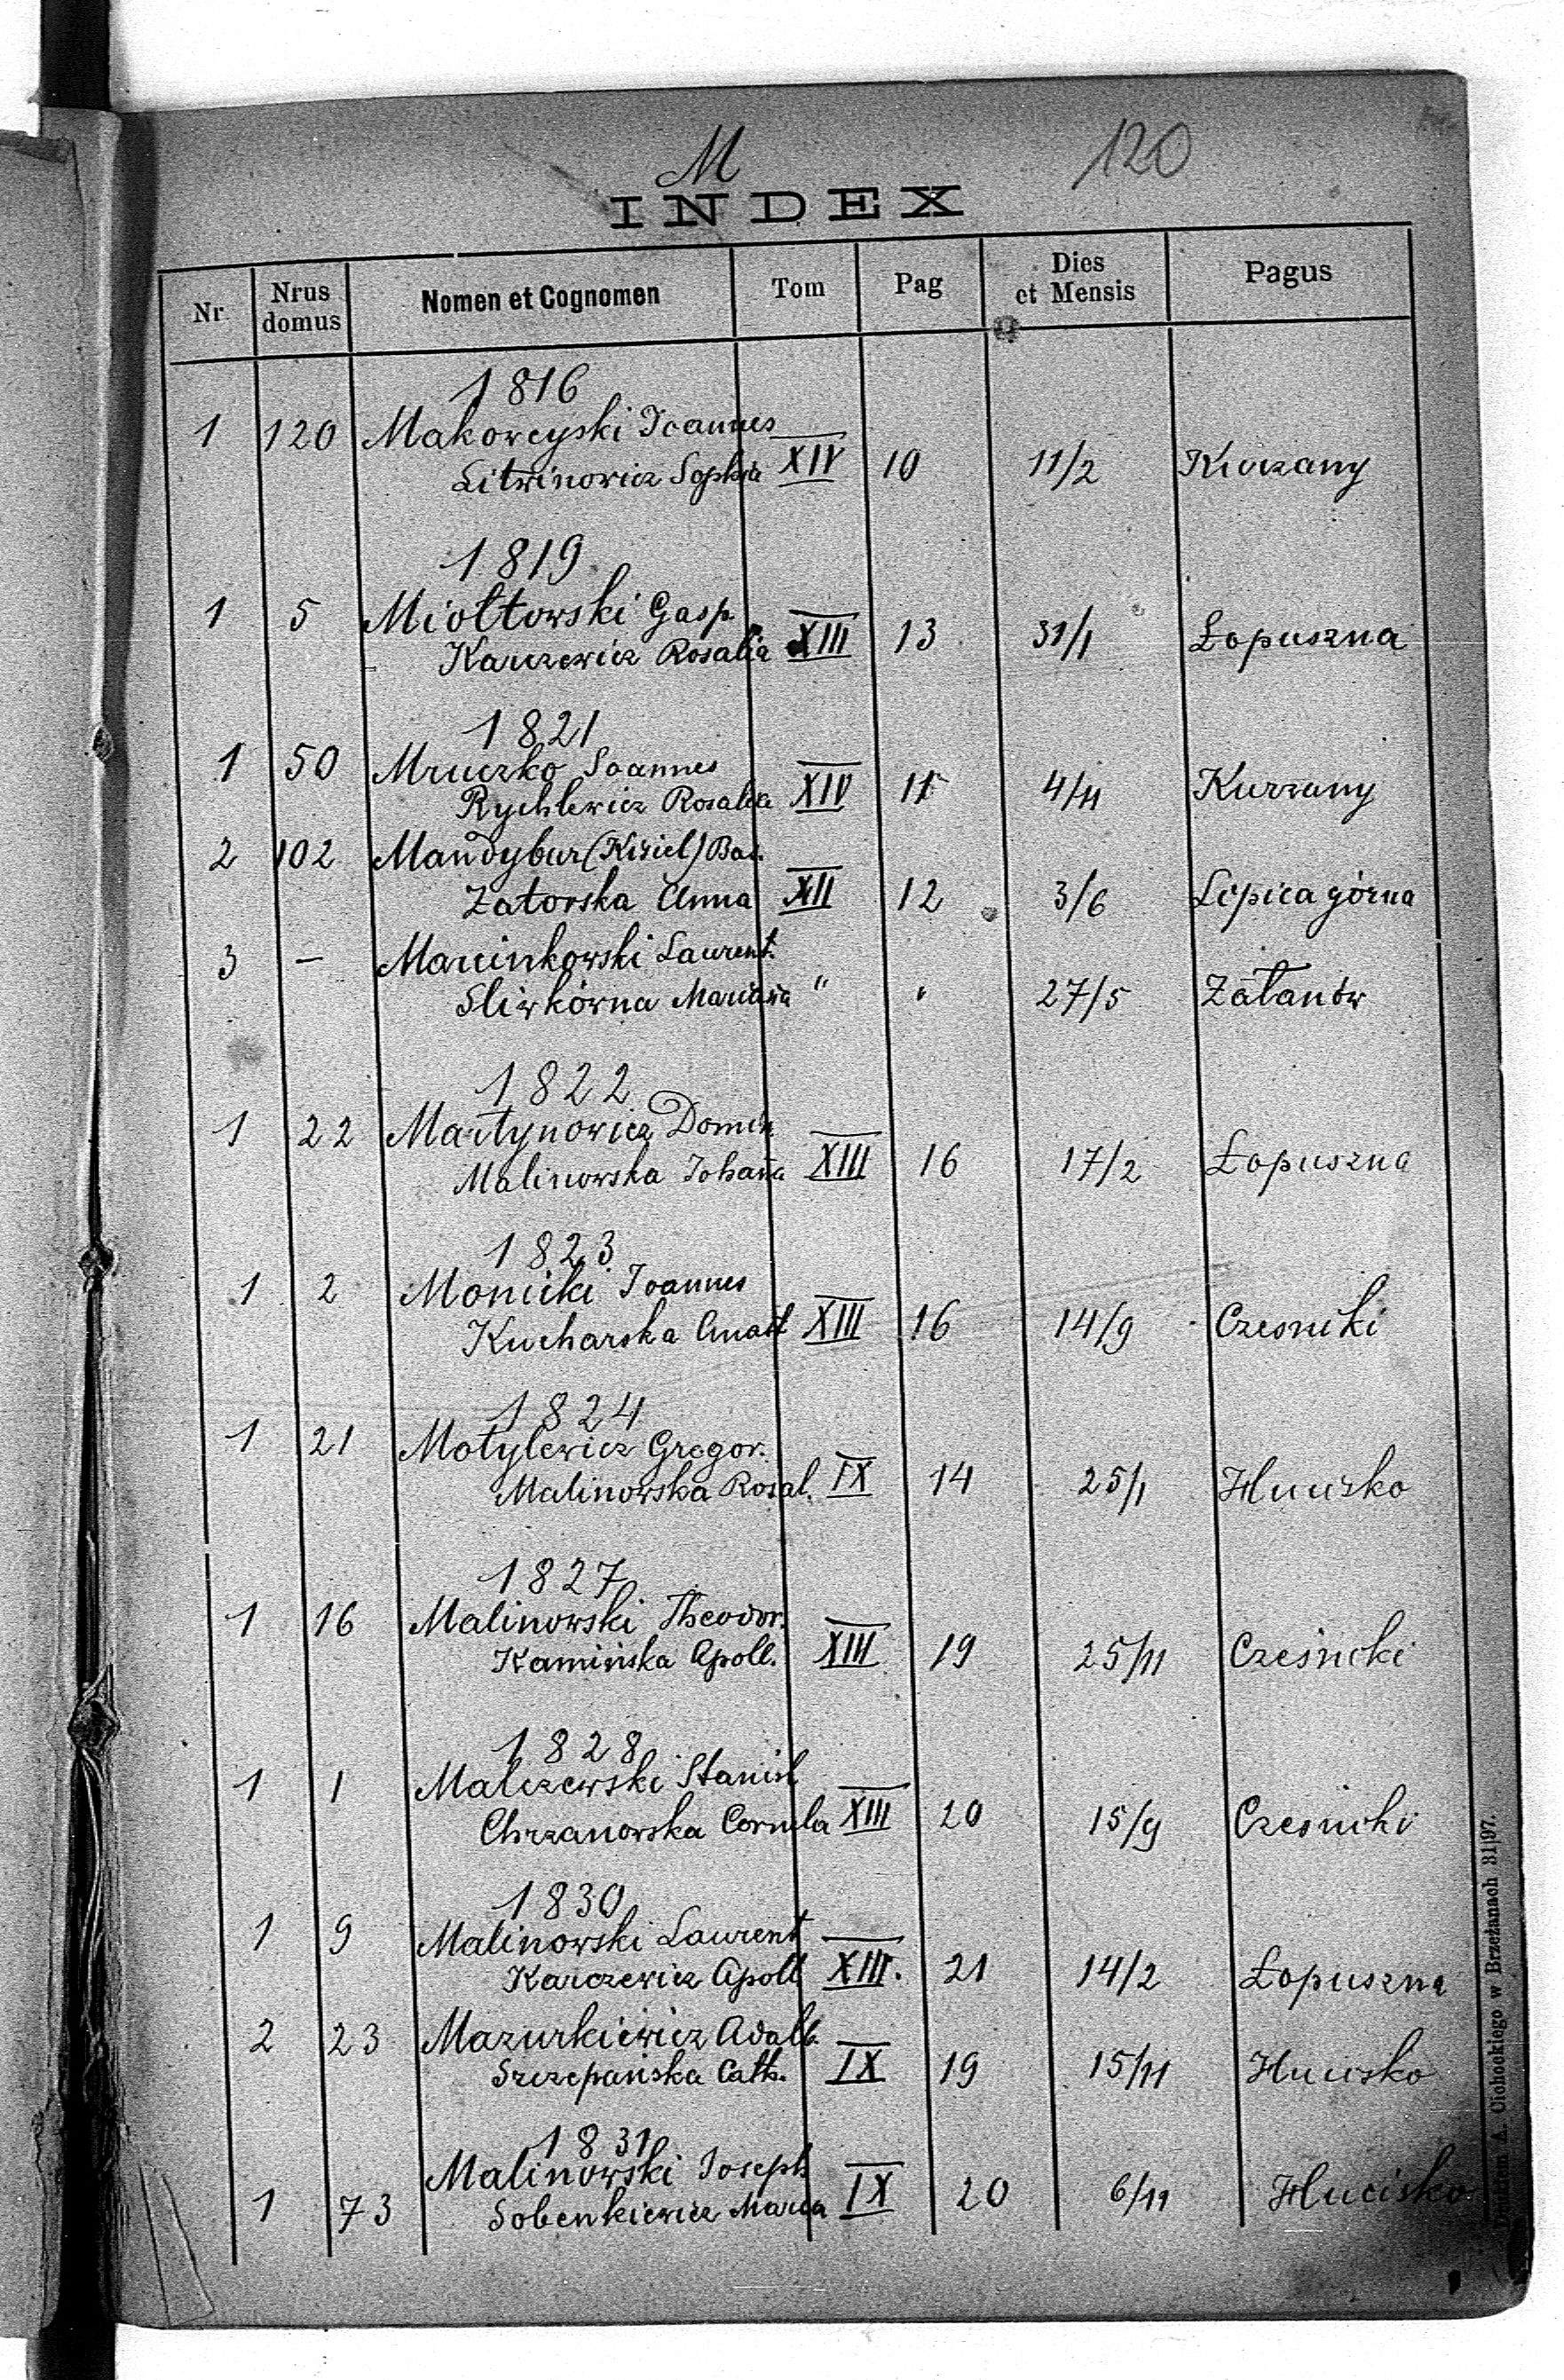 M 120
INDEX
Nr Nrus domus Nomen et Cognomen Tom Pag Dies et Mensis Pagus
1816
1 120 Makowcyski Joannes
Litwinowicz Sophia XIV 10 11/2 Kurzany
1819
1 5 Miołtowski Gasp.
Karczewicz Rosalia XIII 13 31/1 Łopuszna
1821
1 50 Mruczko Joannes
Rychlewicz Rosalia XIV 11 4/11 Kurzany
2 102 Mandybur (Kisiel) Bas.
Zatorska Anna XII 12 3/6 Lipica górna
3 — Marcinkowski Laurent.
Sliwkówna Mariana " " 27/5 Załanów
1822
1 22 Martynowicz Domin
Malinowska Johana XIII 16 17/2 Łopuszna
1823
1 2 Monicki Joannes
Kucharska Anast XIII 16 14/9 Czesniki
1824
1 21 Motylewicz Gregor.
Malinowska Rosal. IX 14 25/1 Hucisko
1827
1 16 Malinowski Theodor.
Kamińska Apoll. XIII 19 25/11 Cześniki
1828
1 1 Malczewski Stanisl
Chrzanowska Cornela XIII 20 15/9 Cześniki
1830
1 9 Malinowski Laurent
Karczewicz Apoll XIII. 21 14/2 Łopuszna
2 23 Mazurkiewicz Adalb.
Szczepańska Cath. IX 19 15/11 Hucisko
1831
1 73 Malinowski Joseph
Sobenkiewicz Maria IX 20 6/11 Hucisko
Drukiem A. Cichockiego w Brzeżanach 31|97.